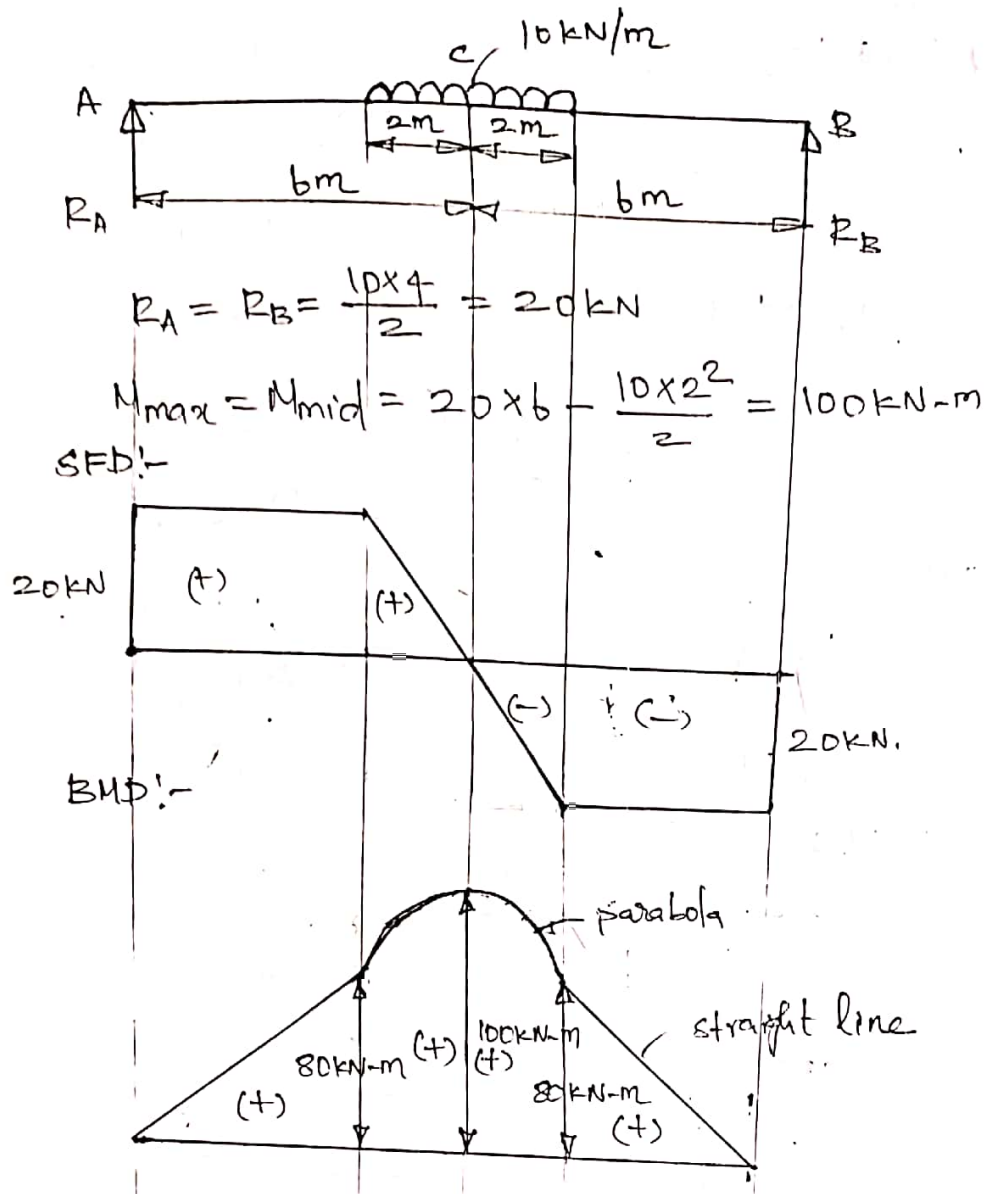 10 kN/m
C
A
B
2m 2m
6m 6m
RA
RB
RA = RB = 10×4/2 = 20 kN
Mmax = Mmid = 20×6 - 10×2²/2 = 100 kN-m
SFD:-
20 KN
(+)
(+)
(-)
(-)
20KN.
BMD:-
parabola
straight line
80KN-m
(+)
100KN-m
(+)
80KN-m
(+)
(+)